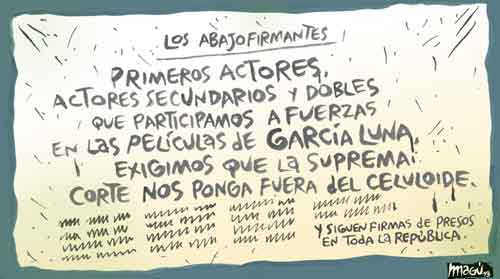 LOS ABAJOFIRMANTES
PRIMEROS ACTORES,
ACTORES SECUNDARIOS Y DOBLES
QUE PARTICIPAMOS A FUERZAS
EN LAS PELÍCULAS DE GARCÍA LUNA,
EXIGIMOS QUE LA SUPREMA
CORTE NOS PONGA FUERA DEL CELULOIDE.
Y SIGUEN FIRMAS DE PRESOS
EN TODA LA REPÚBLICA.
magú